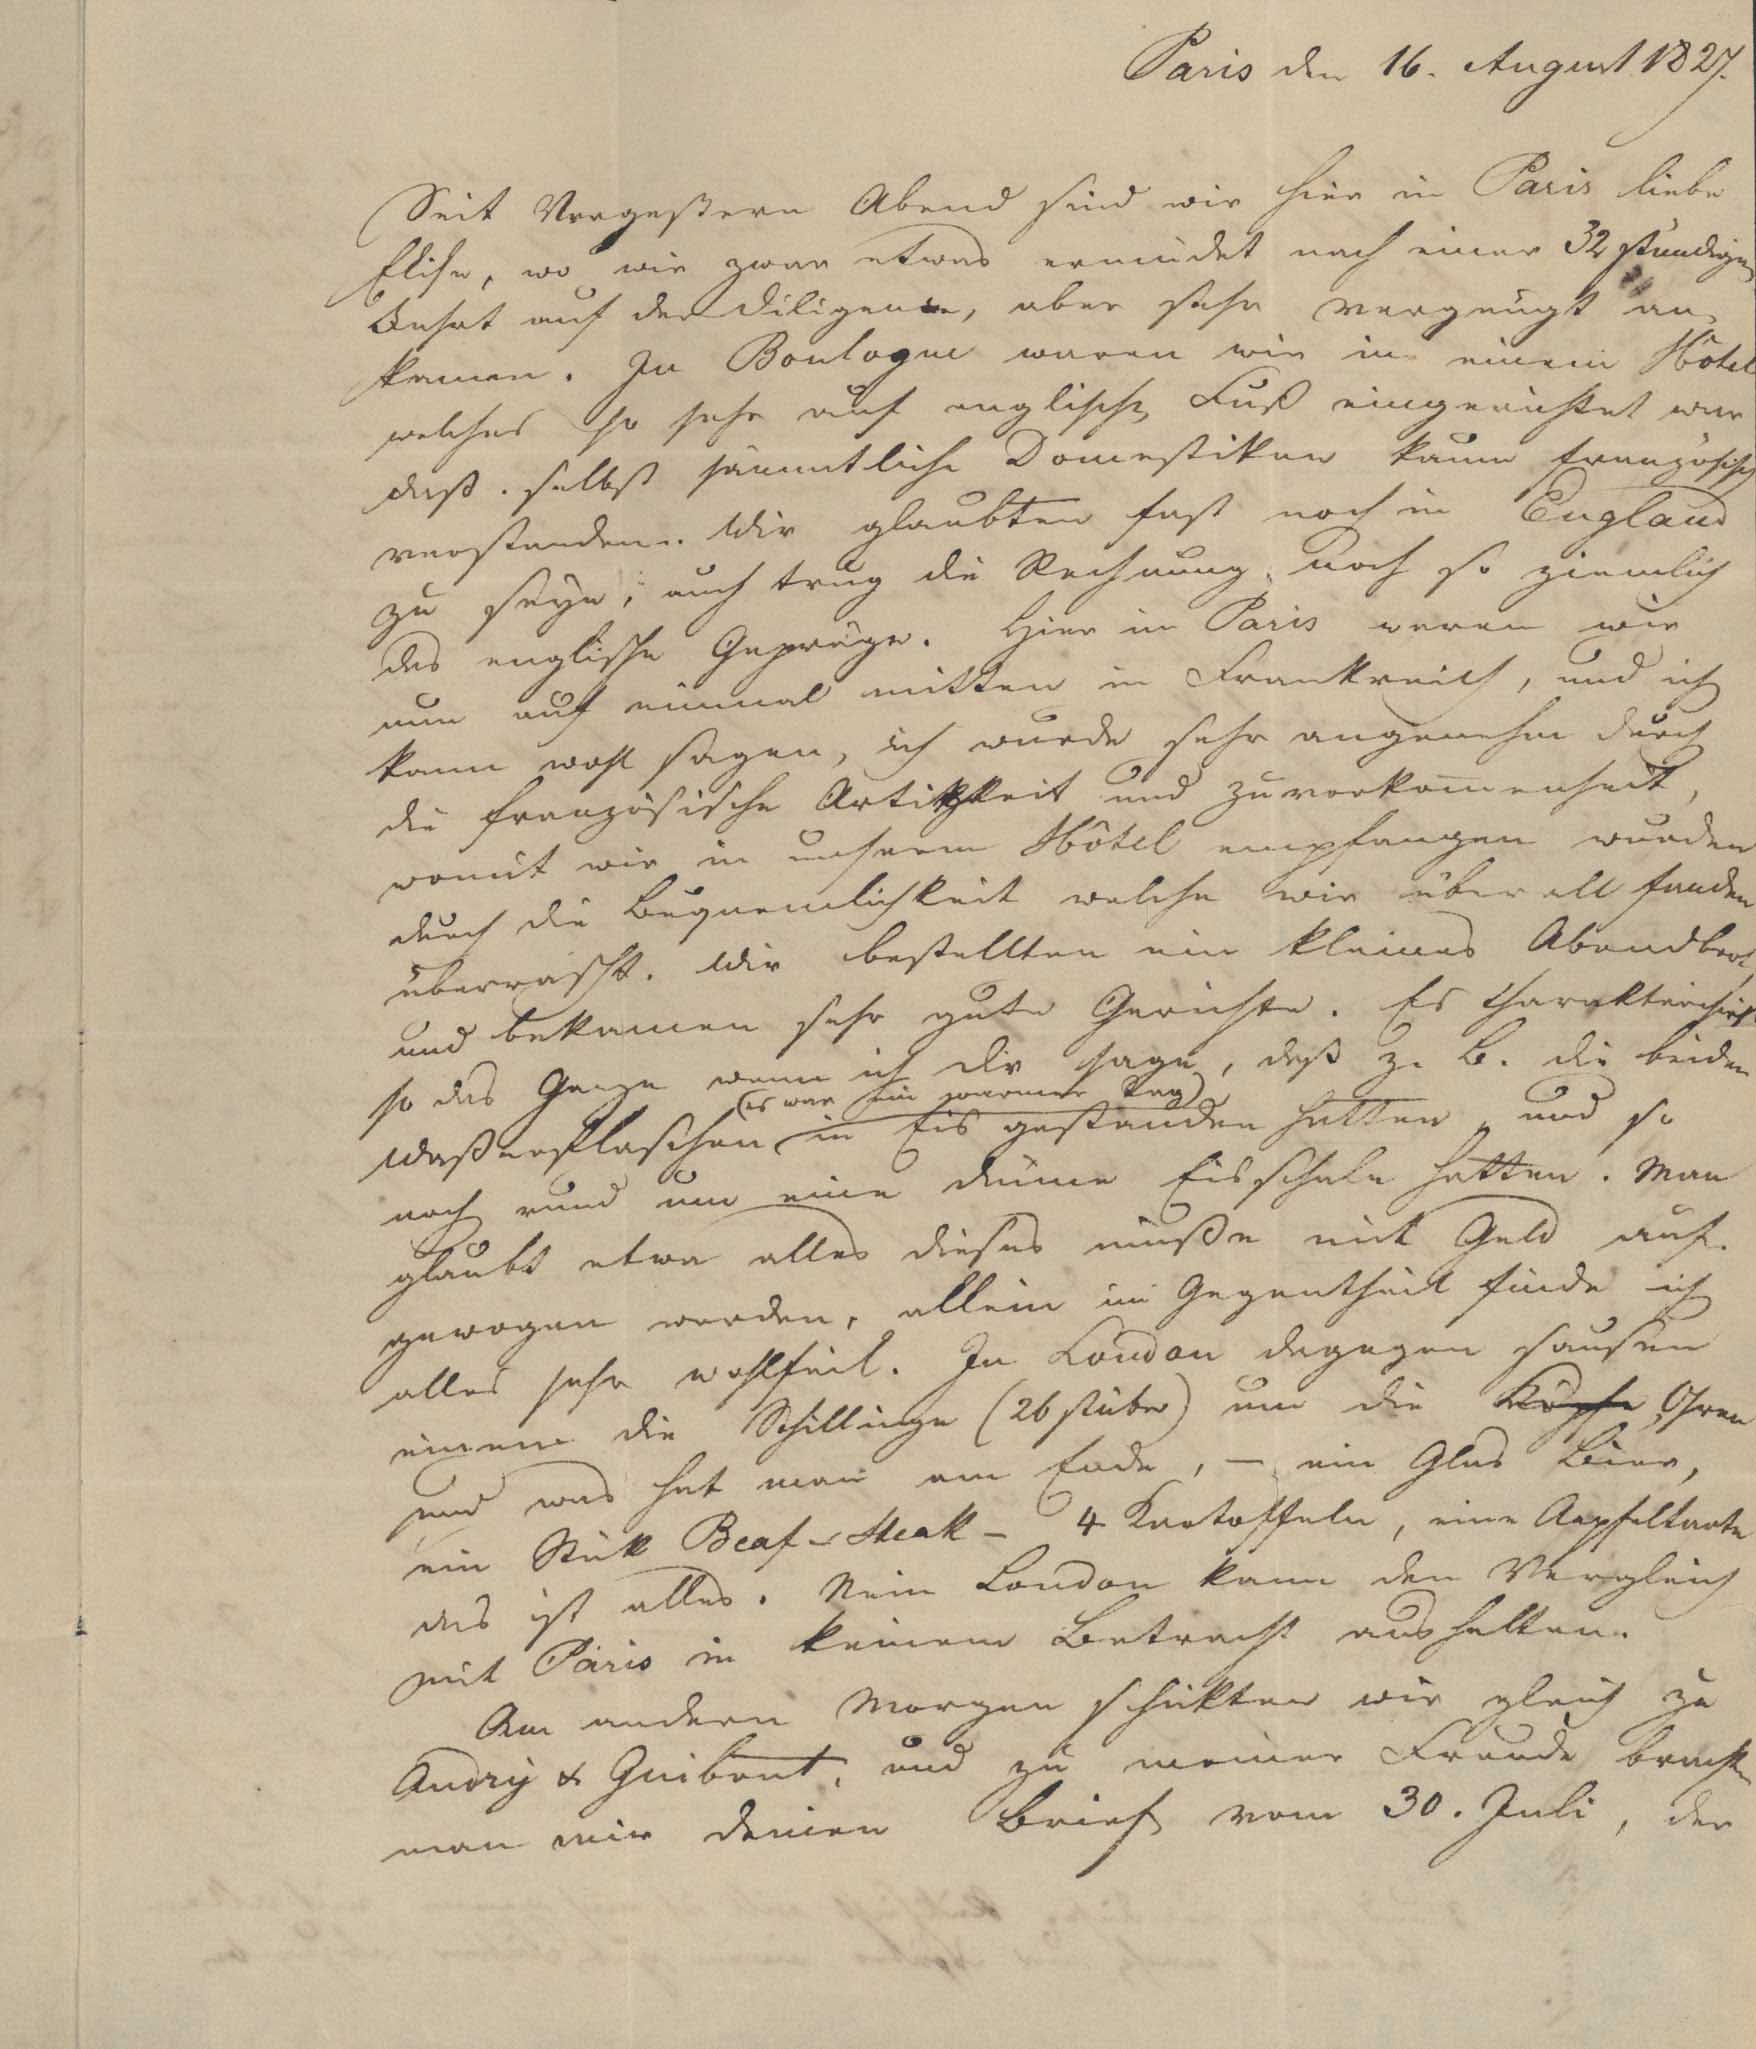 Paris den 16. August 1827.
Seit Vorgeßtern Abend sind wir hier in Paris liebe
Elise, wo wir zwar etwas ermüdet nach einer 32 stündigen
Fahrt auf der Diligence, aber sehr vergnügt an-
kamen. In Boulogne waren wir in einem Hôtel
welches so sehr auf englischen Fuß eingerichtet war
daß selbst sämmtliche Domestiken kaum französisch
verstanden. Wir glaubten fast noch in England
zu seyn; auch trug die Rechnung noch so ziemlich
das englische Gepräge. Hier in Paris waren wir
nun auf einmal mitten in Frankreich, und ich
kann wohl sagen, ich wurde sehr angenehm durch
die französische Artigkeit und Zuvorkom̄enheit,
womit wir in unserem Hôtel empfangen wurden
durch die Bequemlichkeit welche wir überall fanden
überrascht. Wir bestellten ein kleines Abendbrot,
und bekamen sehr gute Gerichte. Es charakterisirt
so das Ganze wenn ich dir sage, daß z. B. die beiden
Waßerflaschen (es war ein warmer Tag) in Eis gestanden hatten, und so
noch rund um eine dünne Eisschale hatten. Man
glaubt etwa alles dieses müße mit Geld auf-
gewogen werden, allein im Gegentheil finde ich
alles sehr wohlfeil. In London dagegen sausen
einem die Schillinge (26 stüber) um die Köpfe Ohren
und was hat man am Ende, – ein Glas Bier,
ein Stük Beaf-Steak – 4 Kartoffeln, eine Aepfeltarte
das ist alles. Nein London kann den Vergleich
mit Paris in keinem Betracht aushalten.
Am andern Morgen schikten wir gleich zu
Andry & Guibout, und zu meiner Freude brachte
man mir deinen Brief vom 30. Juli, der